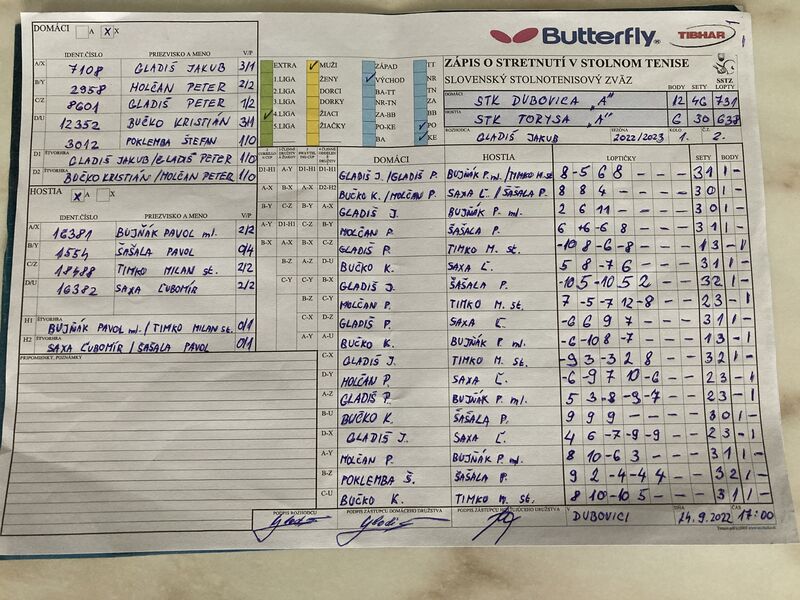 DOMÁCI A X X
IDENT.ČÍSLO PRIEZVISKO A MENO V/P
A/X 7108 GLADIŠ JAKUB 3/1
B/Y 2958 MOLČAN PETER 2/2
C/Z 8601 GLADIŠ PETER 1/2
D/U 12352 BUČKO KRISTIÁN 3/1
3012 POKLEMBA ŠTEFAN 1/0
D1 ŠTVORHRA GLADIŠ JAKUB/GLADIŠ PETER 1/0
D2 ŠTVORHRA BUČKO KRISTIÁN/MOLČAN PETER 1/0
HOSTIA X A X
IDENT.ČÍSLO PRIEZVISKO A MENO V/P
A/X 16381 BUJŇÁK PAVOL ml. 2/2
B/Y 1554 ŠAŠALA PAVOL 0/4
C/Z 18488 TIMKO MILAN st. 2/2
D/U 16382 SAXA ĽUBOMÍR 2/2
H1 ŠTVORHRA BUJŇÁK PAVOL ml./TIMKO MILAN st. 0/1
H2 ŠTVORHRA SAXA ĽUBOMÍR/ŠAŠALA PAVOL 0/1
PRIPOMIENKY, POZNÁMKY
EXTRA MUŽI ZÁPAD TT
1.LIGA ŽENY VÝCHOD NR
2.LIGA DORCI BA-TT
3.LIGA DORKY NR-TN
4.LIGA ŽIACI ZA-BB
5.LIGA ŽIAČKY PO-KE PO
BA KE
Butterfly
TIBHAR
ZÁPIS O STRETNUTÍ V STOLNOM TENISE
SLOVENSKÝ STOLNOTENISOVÝ ZVÄZ
SSTZ
BODY SETY LOPTY
DOMÁCI STK DUBOVICA „A" 12 46 791
HOSTIA STK TORYSA „A" 6 30 638
ROZHODCA GLADIŠ JAKUB SEZÓNA 2022/2023 KOLO 1. Č.Z. 2.
DOMÁCI HOSTIA LOPTIČKY SETY BODY
GLADIŠ J./GLADIŠ P. BUJŇÁK P. ml./TIMKO M. st. 8 -5 6 8 - - - 3 1 1 -
BUČKO K./MOLČAN P. SAXA Ľ./ŠAŠALA P. 8 8 4 - - - - 3 0 1 -
GLADIŠ J. BUJŇÁK P. ml. 2 6 11 - - - - 3 0 1 -
MOLČAN P. ŠAŠALA P. 6 -6 8 - - - 3 1 1 -
GLADIŠ P. TIMKO M. st. -10 8 -6 -8 - - - 1 3 - 1
BUČKO K. SAXA Ľ. 5 8 -7 6 - - - 3 1 1 -
GLADIŠ J. ŠAŠALA P. -10 5 -10 5 2 - - 3 2 1 -
MOLČAN P. TIMKO M. st. 7 -5 -7 12 -8 - - 2 3 - 1
GLADIŠ P. SAXA Ľ. -6 6 9 7 - - - 3 1 1 -
BUČKO K. BUJŇÁK P. ml. -6 -10 8 -7 - - - 1 3 - 1
C-X GLADIŠ J. TIMKO M. st. -9 3 -3 2 8 - - 3 2 1 -
D-Y MOLČAN P. SAXA Ľ. -6 -9 7 10 -6 - - 2 3 - 1
A-Z GLADIŠ P. BUJŇÁK P. ml. 5 3 -8 -9 -7 - - 2 3 - 1
B-U BUČKO K. ŠAŠALA P. 9 9 9 - - - - 3 0 1 -
D-X GLADIŠ J. SAXA Ľ. 4 6 -7 -9 -9 - - 2 3 - 1
A-Y MOLČAN P. BUJŇÁK P. ml. 8 10 -6 3 - - - 3 1 1 -
B-Z POKLEMBA Š. ŠAŠALA P. 9 2 -4 -4 4 - - 3 2 1 -
C-U BUČKO K. TIMKO M. st. 8 10 -10 5 - - - 3 1 1 -
PODPIS ROZHODCU PODPIS ZÁSTUPCU DOMÁCEHO DRUŽSTVA PODPIS ZÁSTUPCU HOSŤUJÚCEHO DRUŽSTVA V DUBOVICI DŇA 24.9.2022 ČAS 17:00